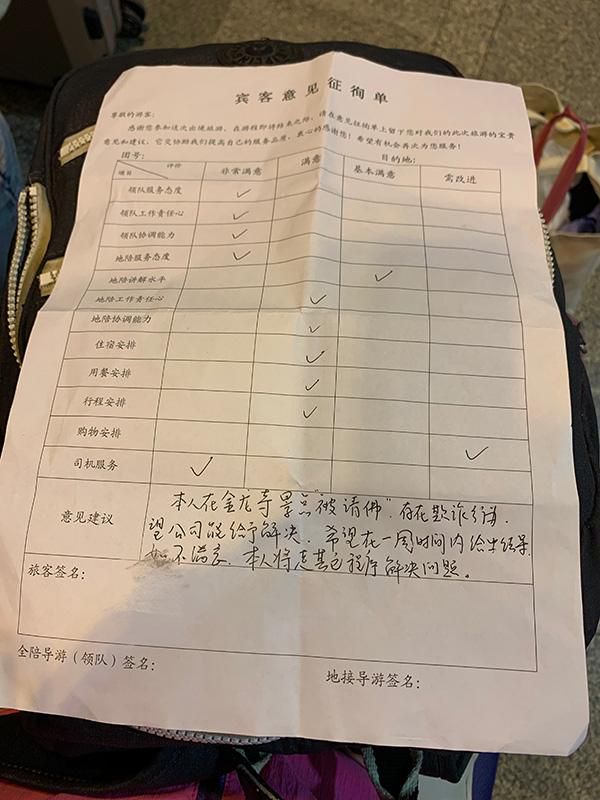 宾客意见征徇单
尊敬的游客:
感谢您参加这次出境旅游,在游程即将结束之际,请在意见征徇单上留下您对我们的此次旅游的宝贵
意见和建议,它交协助我们提高自己的服务品质,衷心的感谢您!希望有机会再次为您服务!
团号: 目的地:
项目 评价 非常满意 满意 基本满意 需改进
领队服务态度 ✓
领队工作责任心 ✓
领队协调能力 ✓
地陪服务态度 ✓
地陪讲解水平 ✓
地陪工作责任心 ✓
地陪协调能力 ✓
住宿安排 ✓
用餐安排 ✓
行程安排 ✓
购物安排 ✓
司机服务 ✓
意见建议
本人在金龙寺景点"被请佛"存在欺诈行为,
望公司能给予解决。希望在一周时间内给出结果
如不满意,本人将走其它程序解决问题。
旅客签名:
全陪导游(领队)签名:
地接导游签名: